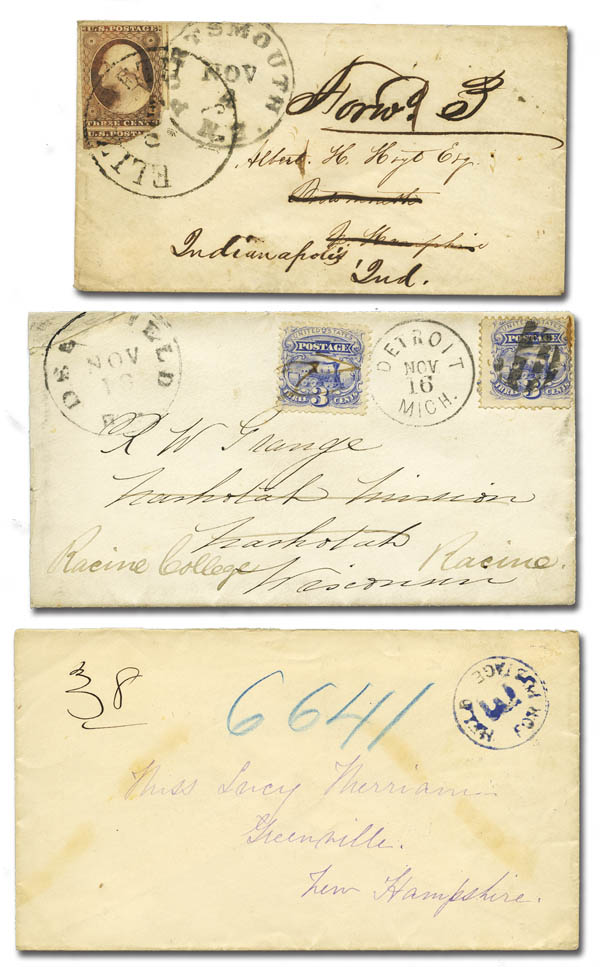 U.S. POSTAGE
THREE CENTS
U.S. POSTAGE
PORTSMOUTH N.H.
NOV
Forwd 3
Albert H. Hoyt Esq.
Portsmouth
N. Hampshire
Indianapolis
Ind.
NOV
16
UNITED STATES
POSTAGE
THREE CENTS
3
DETROIT
NOV
16
MICH.
UNITED STATES
POSTAGE
3
R W Grange
Nashotah Mission
Nashotah
Racine College Racine.
Wisconsin
38
6641
HELD FOR POSTAGE
Miss Lucy Merriam
Greenville.
New Hampshire.